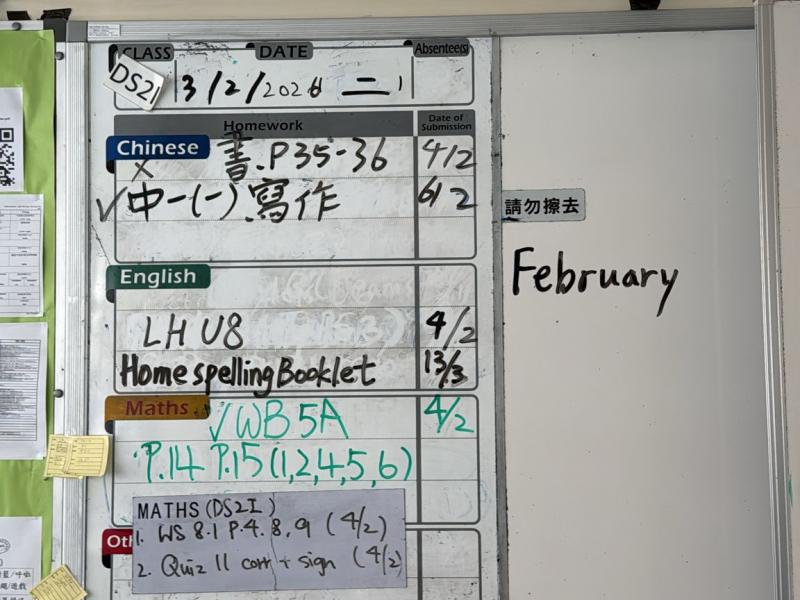 CLASS DATE Absentee(s)
DS2I 3/2/2026 二
Homework Date of Submission
Chinese
書.P35-36 4/2
✓中一(一)寫作 6/2
請勿擦去
February
English
LH U8 4/2
Home spelling Booklet 13/3
Maths
✓WB 5A 4/2
P.14 P.15 (1,2,4,5,6)
MATHS (DS2I)
1. WS 8.1 P.4.8,9 (4/2)
2. Quiz 11 corr + sign (4/2)